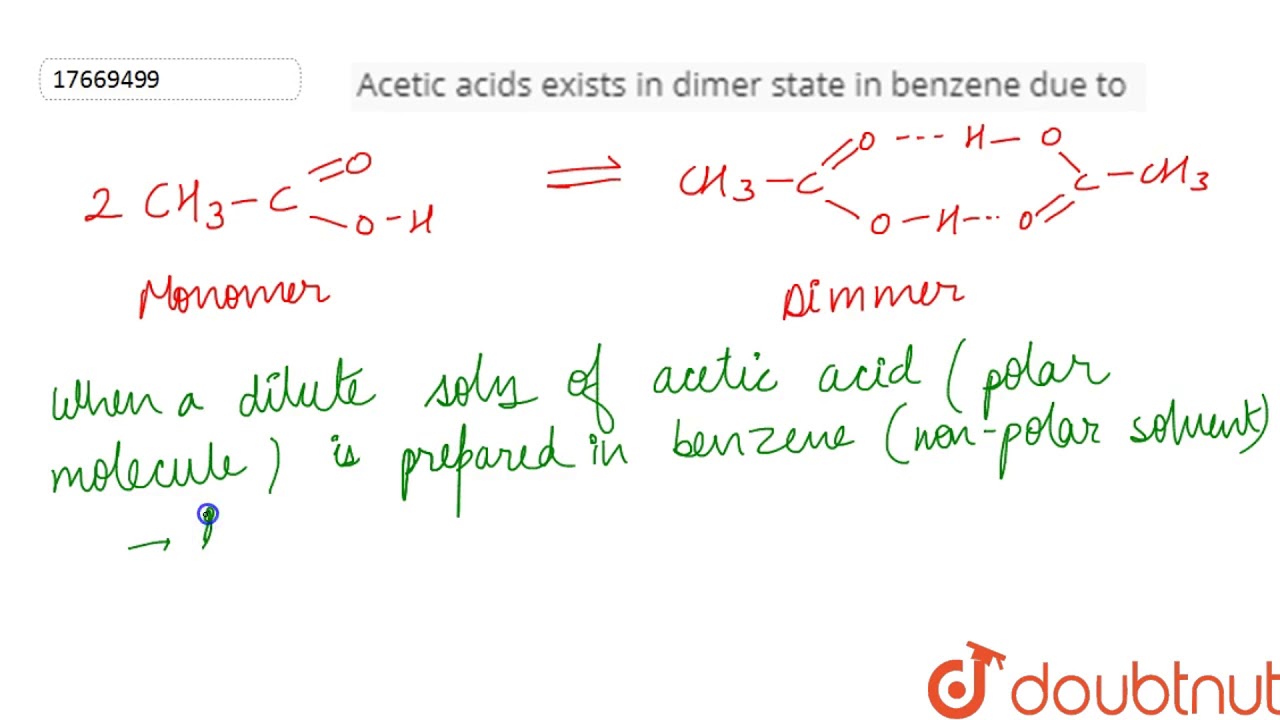 17669499
Acetic acids exists in dimer state in benzene due to
2 CH3-C=O O-H ⇌ CH3-C=O---H-O C-CH3 O-H---O
Monomer Dimmer
when a dilute soln of acetic acid (polar
molecule) is prepared in benzene (non-polar solvent)
→
doubtnut